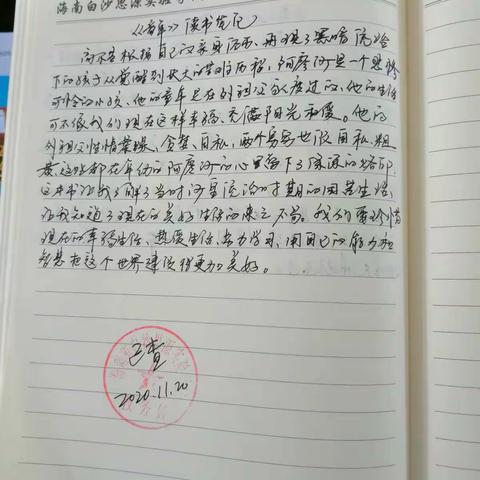 海南白沙思源实验学
《童年》读书笔记
高尔基根据自己的亲身经历、再现了黑暗统治
下的孩子从觉醒到长大的苦难历程，阿廖沙是一个悲惨
可怜的小孩、他的童年是在外祖父家度过的、他的生活
可不像我们现在这样幸福、充满阳光和爱。他的
外祖父性情暴燥、贪婪、自私，两个舅舅也很自私、粗
暴、这些都在年幼的阿廖沙的心里留下了深深的烙印。
这本书让我了解了当时沙皇统治时期的困苦生活，
让我知道了现在的美好生活的来之不易。我们要珍惜
现在的幸福生活、热爱生活、努力学习、用自己的能力和
智慧把这个世界建设得更加美好。
已查
2020.11.20